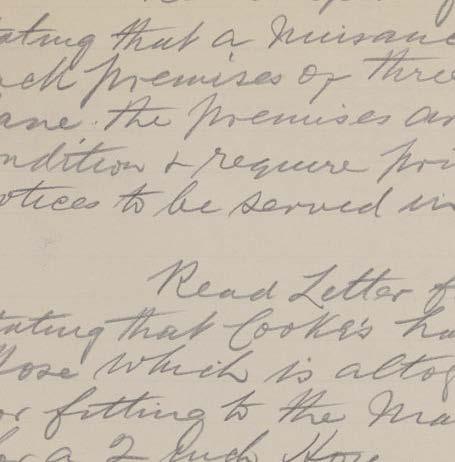 ating that a Nuisance
ack premises of three
ane. the premises are
ndition & require pri
otices to be served in
Read Letter f
tating that Cooke's ha
Hose which is altog
or fitting to the Ma
for a 2 Inch Hose